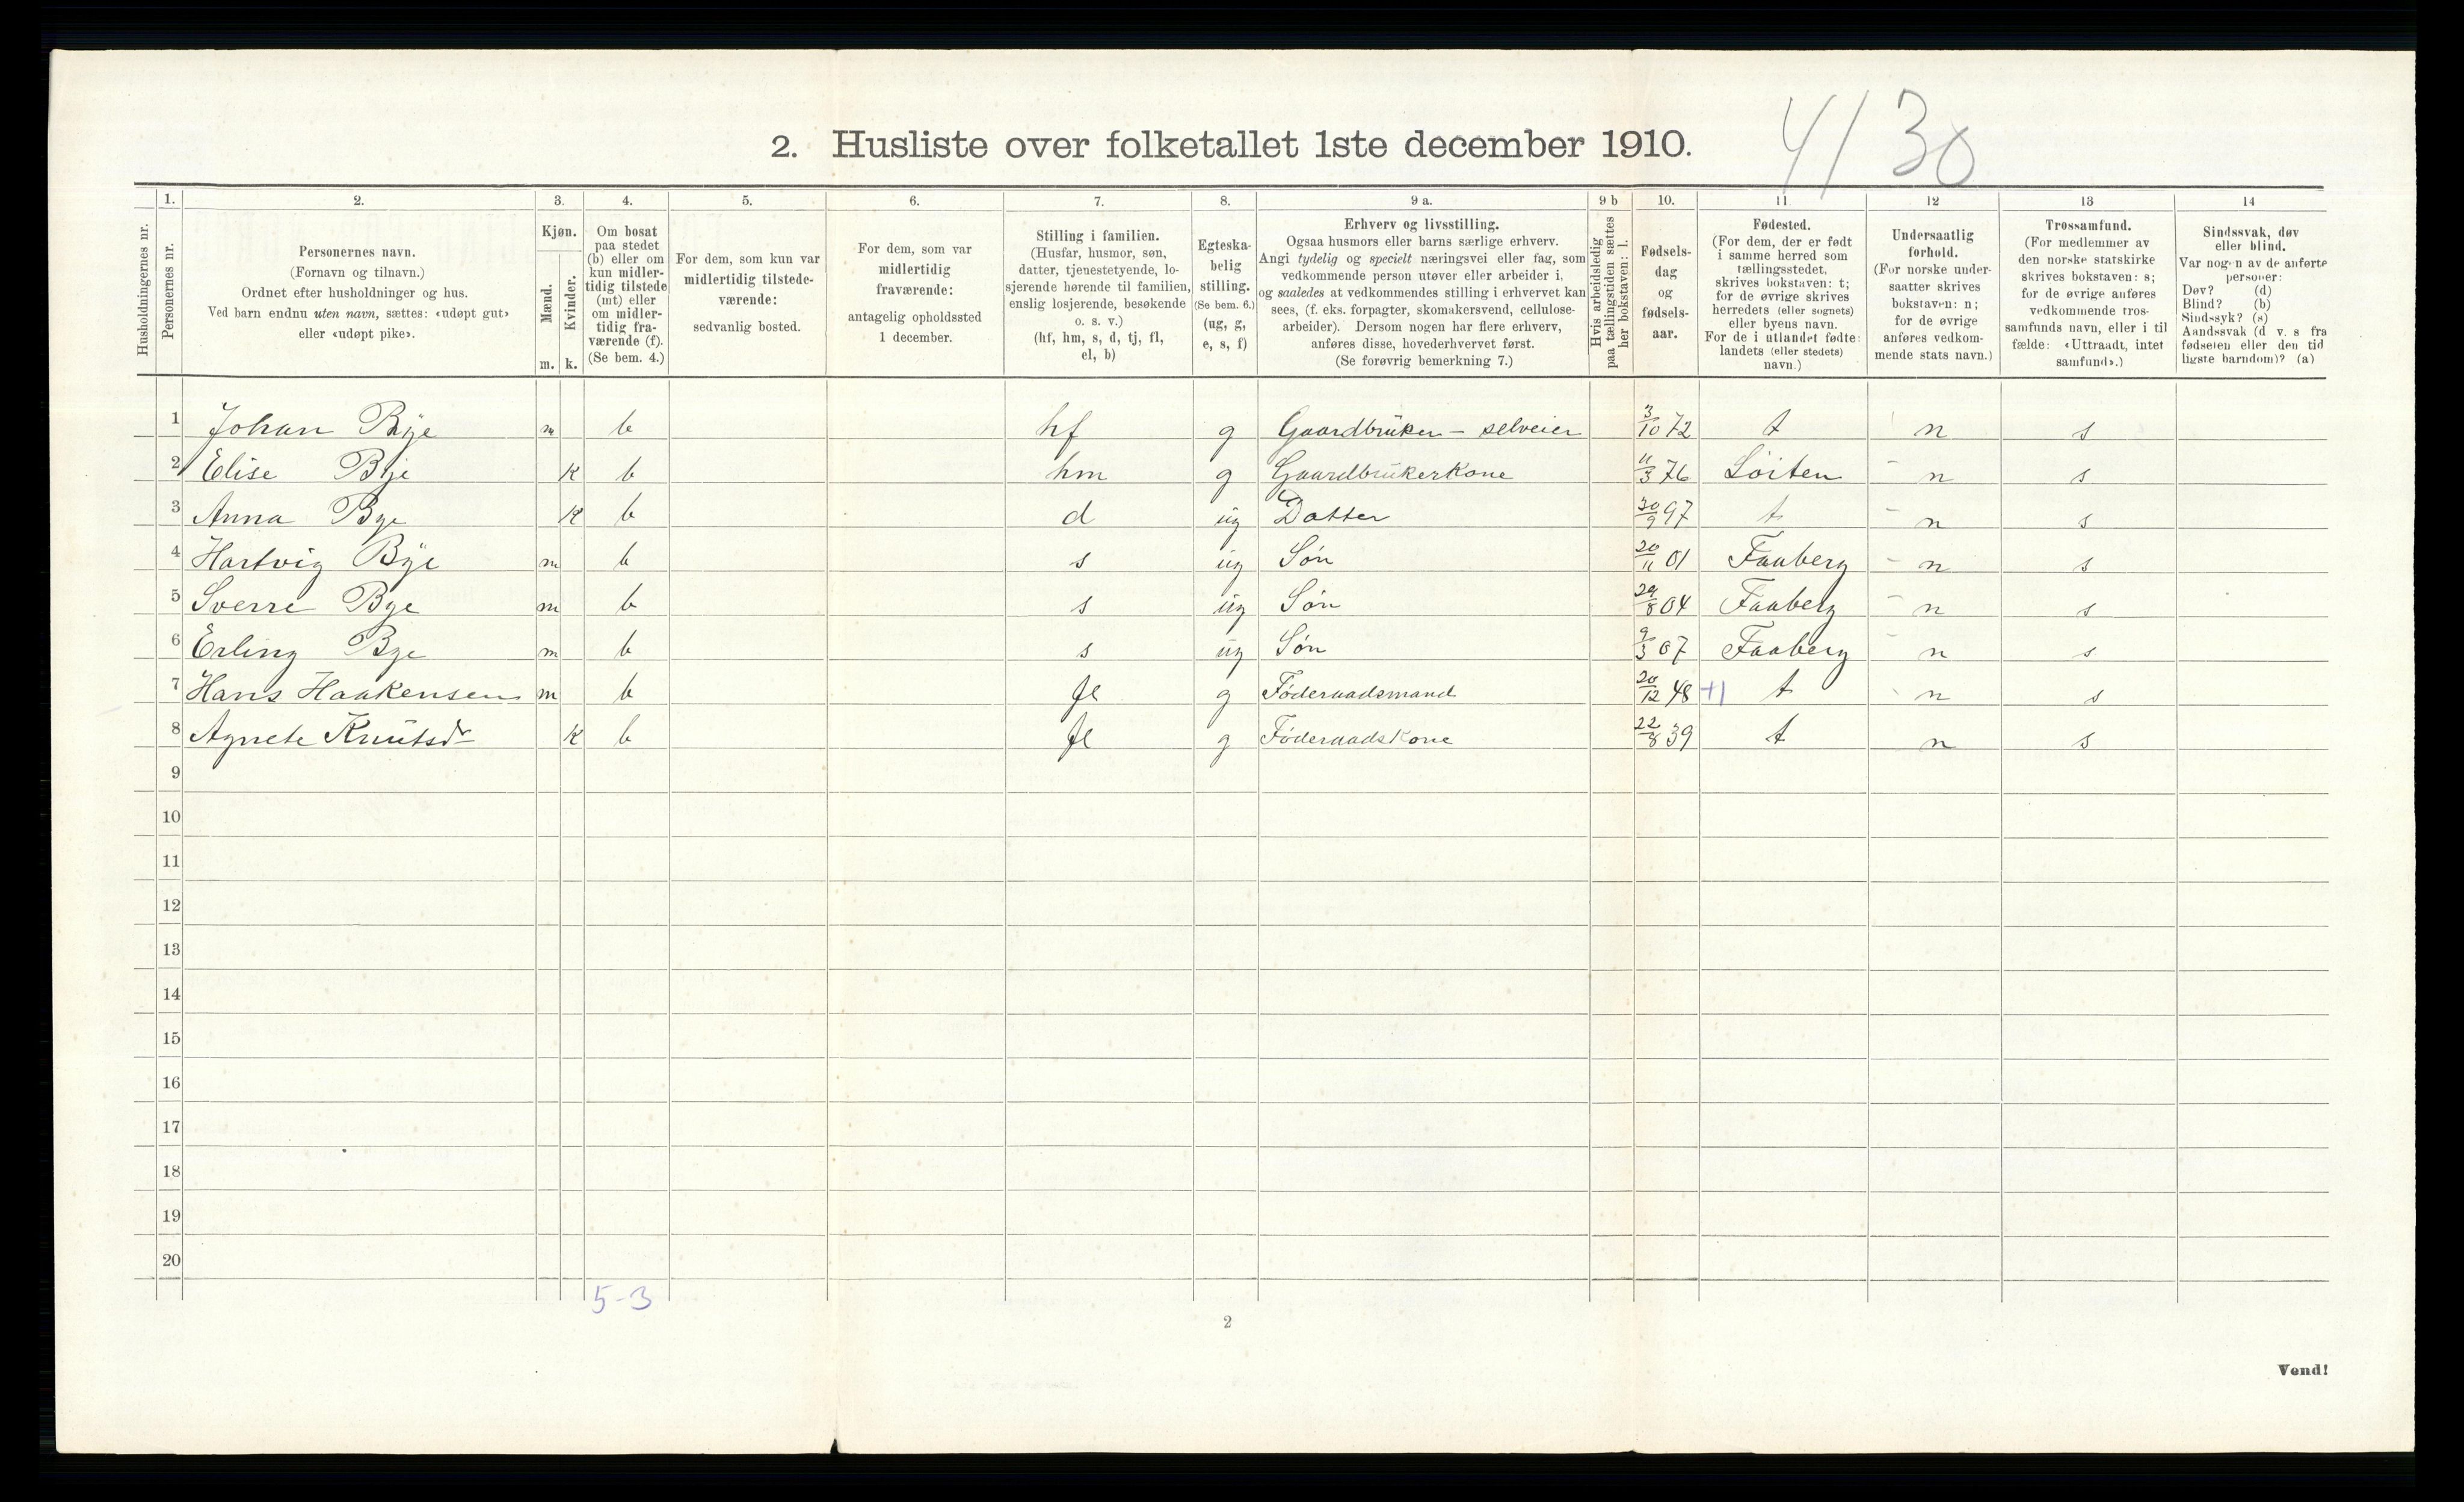 4/30
2. Husliste over folketallet 1ste december 1910.
Husholdningernes nr.
1.
Personernes nr.
2.
Personernes navn.
(Fornavn og tilnavn.)
Ordnet efter husholdninger og hus.
Ved barn endnu uten navn, sættes: «udøpt gut»
eller «udøpt pike».
3.
Kjøn.
Mænd.
Kvinder.
m. k.
4.
Om bosat
paa stedet
(b) eller om
kun midler-
tidig tilstede
(mt) eller
om midler-
tidig fra-
værende (f).
(Se bem. 4.)
5.
For dem, som kun var
midlertidig tilstede-
værende:
sedvanlig bosted.
6.
For dem, som var
midlertidig
fraværende:
antagelig opholdssted
1 december.
7.
Stilling i familien.
(Husfar, husmor, søn,
datter, tjenestetyende, lo-
sjerende hørende til familien,
enslig losjerende, besøkende
o. s. v.)
(hf, hm, s, d, tj, fl,
el, b)
8.
Egteska-
belig
stilling.
(Se bem. 6.)
(ug, g,
e, s, f)
9 a.
Erhverv og livsstilling.
Ogsaa husmors eller barns særlige erhverv.
Angi tydelig og specielt næringsvei eller fag, som
vedkommende person utøver eller arbeider i,
og saaledes at vedkommendes stilling i erhvervet kan
sees, (f. eks. forpagter, skomakersvend, cellulose-
arbeider). Dersom nogen har flere erhverv,
anføres disse, hovederhvervet først.
(Se forøvrig bemerkning 7.)
9 b
Hvis arbeidsledig
paa tællingstiden sættes
her bokstaven: l.
10.
Fødsels-
dag
og
fødsels-
aar.
11
Fødested.
(For dem, der er født
i samme herred som
tællingsstedet,
skrives bokstaven: t;
for de øvrige skrives
herredets (eller sognets)
eller byens navn.
For de i utlandet fødte:
landets (eller stedets)
navn.)
12
Undersaatlig
forhold.
(For norske under-
saatter skrives
bokstaven: n;
for de øvrige
anføres vedkom-
mende stats navn.)
13
Trossamfund.
(For medlemmer av
den norske statskirke
skrives bokstaven: s;
for de øvrige anføres
vedkommende tros-
samfunds navn, eller i til
fælde: «Uttraadt, intet
samfund».)
14
Sindssvak, døv
eller blind.
Var nogen av de anførte
personer:
Døv? (d)
Blind? (b)
Sindssyk? (s)
Aandssvak (d v. s fra
fødselen eller den tid
ligste barndom)? (a)
1 Johan Bye m b hf g Gaardbruker - selveier 3/10 72 t n s
2 Elise Bye k b hm g Gaardbrukerkone 11/3 76 Löiten n s
3 Anna Bye k b d ug Datter 30/9 97 t n s
4 Hartvig Bye m b s ug Søn 20/11 01 Faaberg n s
5 Sverre Bye m b s ug Søn 29/8 04 Faaberg n s
6 Erling Bye m b s ug Søn 9/3 07 Faaberg n s
7 Hans Haakensen m b fl g Føderaadsmand 20/12 48 +1 t n s
8 Agnete Knutsdr k b fl g Føderaadskone 22/8 39 t n s
9
10
11
12
13
14
15
16
17
18
19
20
5-3
2
Vend!